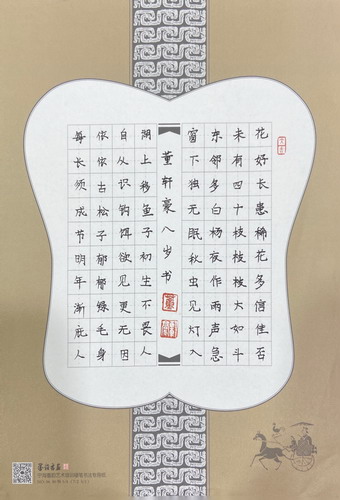 花好长患稀花多信佳否
未有四十枝枝枝大如斗
东邻多白杨夜作雨声急
窗下独无眠秋虫见灯入
董轩豪八岁书
董
湖上移鱼子初生不畏人
自从识钩饵欲见更无因
依依古松子郁郁绿毛身
每长须成节明年渐庇人